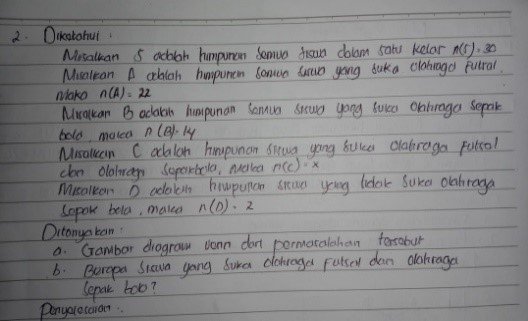 2. Diketahui :
Misalkan S adalah himpunan semua siswa dalam satu kelas n(S) = 30
Misalkan A adalah himpunan semua siswa yang suka olahraga futsal.
Maka n(A) = 22
Misalkan B adalah himpunan semua siswa yang suka olahraga sepak
bola, maka n(B) = 14
Misalkan C adalah himpunan siswa yang suka olahraga futsal
dan olahraga sepakbola, maka n(C) = x
Misalkan D adalah himpunan siswa yang tidak suka olahraga
sepak bola, maka n(D) = 2
Ditanyakan :
a. Gambar diagram venn dari permasalahan tersebut
b. Berapa siswa yang suka olahraga futsal dan olahraga
sepak bola?
Penyelesaian :